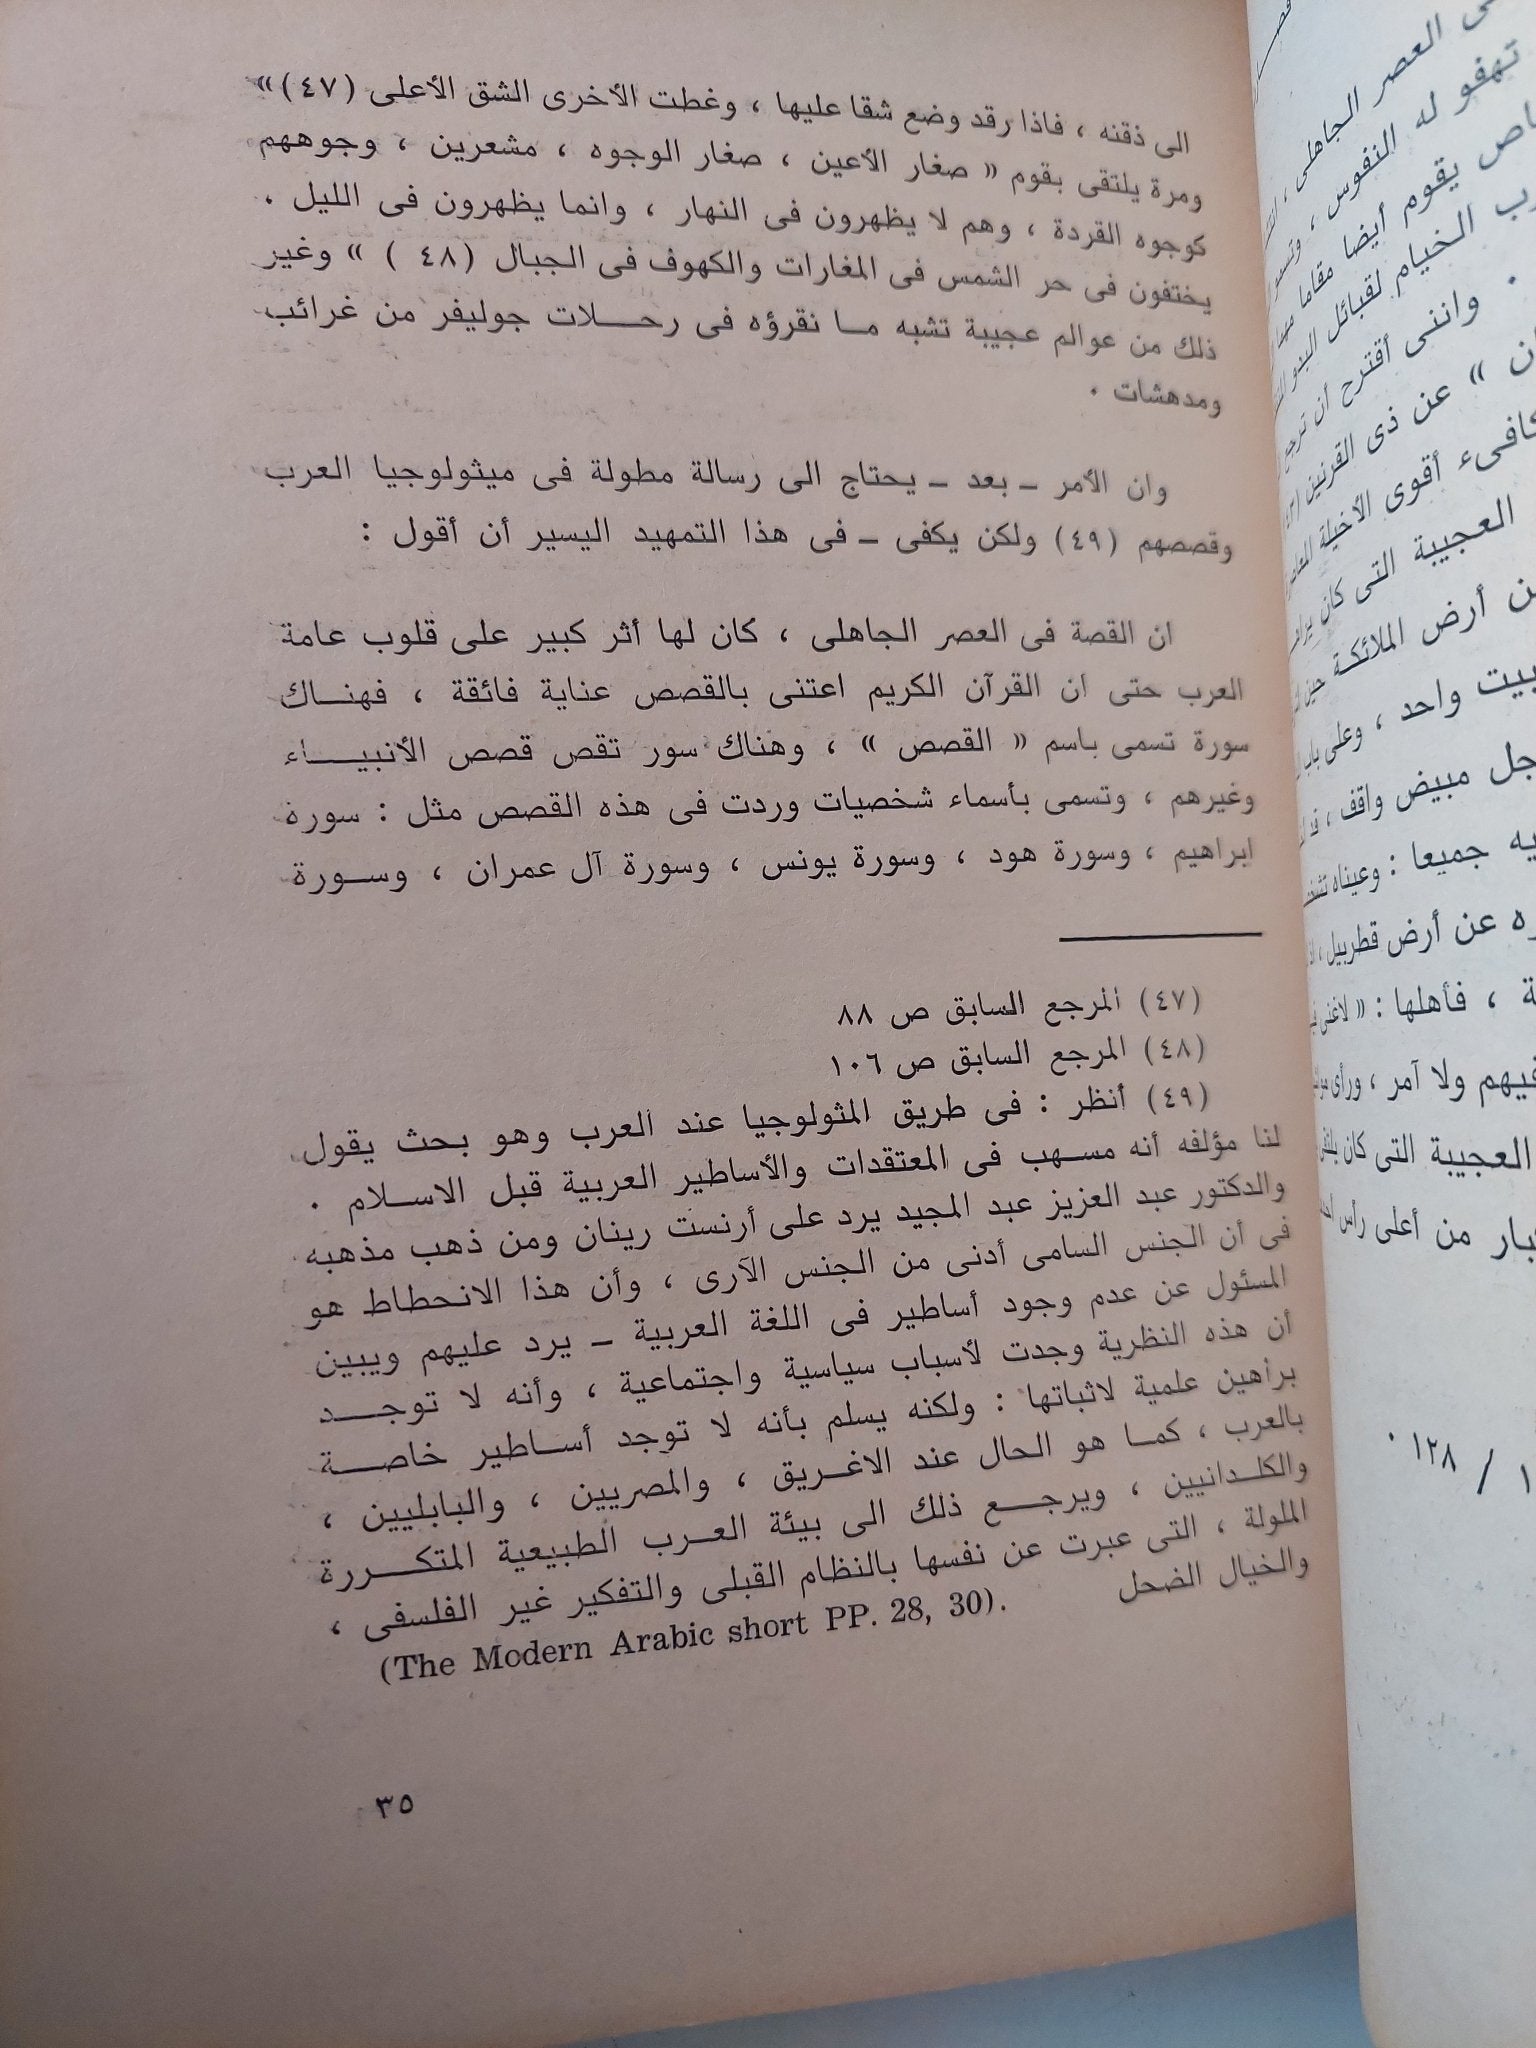 الى ذقنه ، فاذا رقد وضع شقا عليها ، وغطت الأخرى الشق الأعلى (٤٧) »
ومرة يلتقى بقوم « صغار الأعين ، صغار الوجوه ، مشعرين ، وجوههم
كوجوه القردة ، وهم لا يظهرون فى النهار ، وانما يظهرون فى الليل .
يختفون فى حر الشمس فى المغارات والكهوف فى الجبال (٤٨ ) » وغير
ذلك من عوالم عجيبة تشبه مـا نقرؤه فى رحـــلات جوليفر من غرائب
ومدهشات .
وان الأمر ــ بعد ــ يحتاج الى رسالة مطولة فى ميثولوجيا العرب
وقصصهم (٤٩) ولكن يكفى ــ فى هذا التمهيد اليسير أن أقول :
ان القصة فى العصر الجاهلى ، كان لها أثر كبير على قلوب عامة
العرب حتى ان القرآن الكريم اعتنى بالقصص عناية فائقة ، فهنــاك
سورة تسمى باسم « القصص » ، وهناك سور تقص قصص الأنبيــــاء
وغيرهم ، وتسمى بأسماء شخصيات وردت فى هذه القصص مثل : سورة
ابراهيم ، وسورة هود ، وسورة يونس ، وسورة آل عمران ، وســورة
(٤٧) المرجع السابق ص ٨٨
(٤٨) المرجع السابق ص ١٠٦
(٤٩) أنظر : فى طريق المثولوجيا عند العرب وهو بحث يقول
لنا مؤلفه أنه مســهب فى المعتقدات والأساطير العربية قبل الاســلام .
والدكتور عبد العزيز عبد المجيد يرد على أرنست رينان ومن ذهب مذهبه
فى أن الجنس السامى أدنى من الجنس الآرى ، وأن هذا الانحطاط هو
المسئول عن عدم وجود أساطير فى اللغة العربية ــ يرد عليهم ويبين
أن هذه النظرية وجدت لأسباب سياسية واجتماعية ، وأنه لا توجــــد
براهين علمية لاثباتها : ولكنه يسلم بأنه لا توجد أســاطير خاصـــة
بالعرب ، كمــا هو الحال عند الاغــريق ، والمصريين ، والبابليين ،
والكلــدانيين ، ويرجـــع ذلك الى بيئة العــرب الطبيعية المتكـــررة
الملولة ، التى عبرت عن نفسها بالنظام القبلى والتفكير غير الفلسفى ،
والخيال الضحل (The Modern Arabic short PP. 28, 30).
٣٥
ى العصر الجاهلى ،
تهفو له النفوس ،
يقوم أيضا مقاما
الخيام لقبائل البدو
. واننى أقترح أن ترجع
» عن ذى القرنين
أقوى الأخيلة
العجيبة التى كان
أرض الملائكة حين
بيت واحد ، وعلى باب
مبيض واقف ،
جميعا : وعيناه
عن أرض قطربيل ،
، فأهلها : « لاغنى
فيهم ولا آمر ، ورأى
العجيبة التى كان يلتقى
من أعلى رأس
١٢٨ .